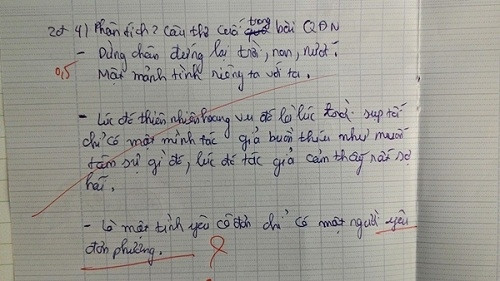 2đ 4) Phân tích 2 câu thơ cuối trong bài QĐN
- Dừng chân đứng lại trời, non, nước.
0,5
Một mảnh tình riêng ta với ta.
- Lúc đó thiên nhiên hoang vu để lại lúc trời sụp tối
chỉ có một mình tác giả buồn thiu như muốn
tâm sự gì đó, lúc đó tác giả cảm thấy rất sợ
hãi.
- Là một tình yêu cô đơn chỉ có một người yêu
đơn phương.